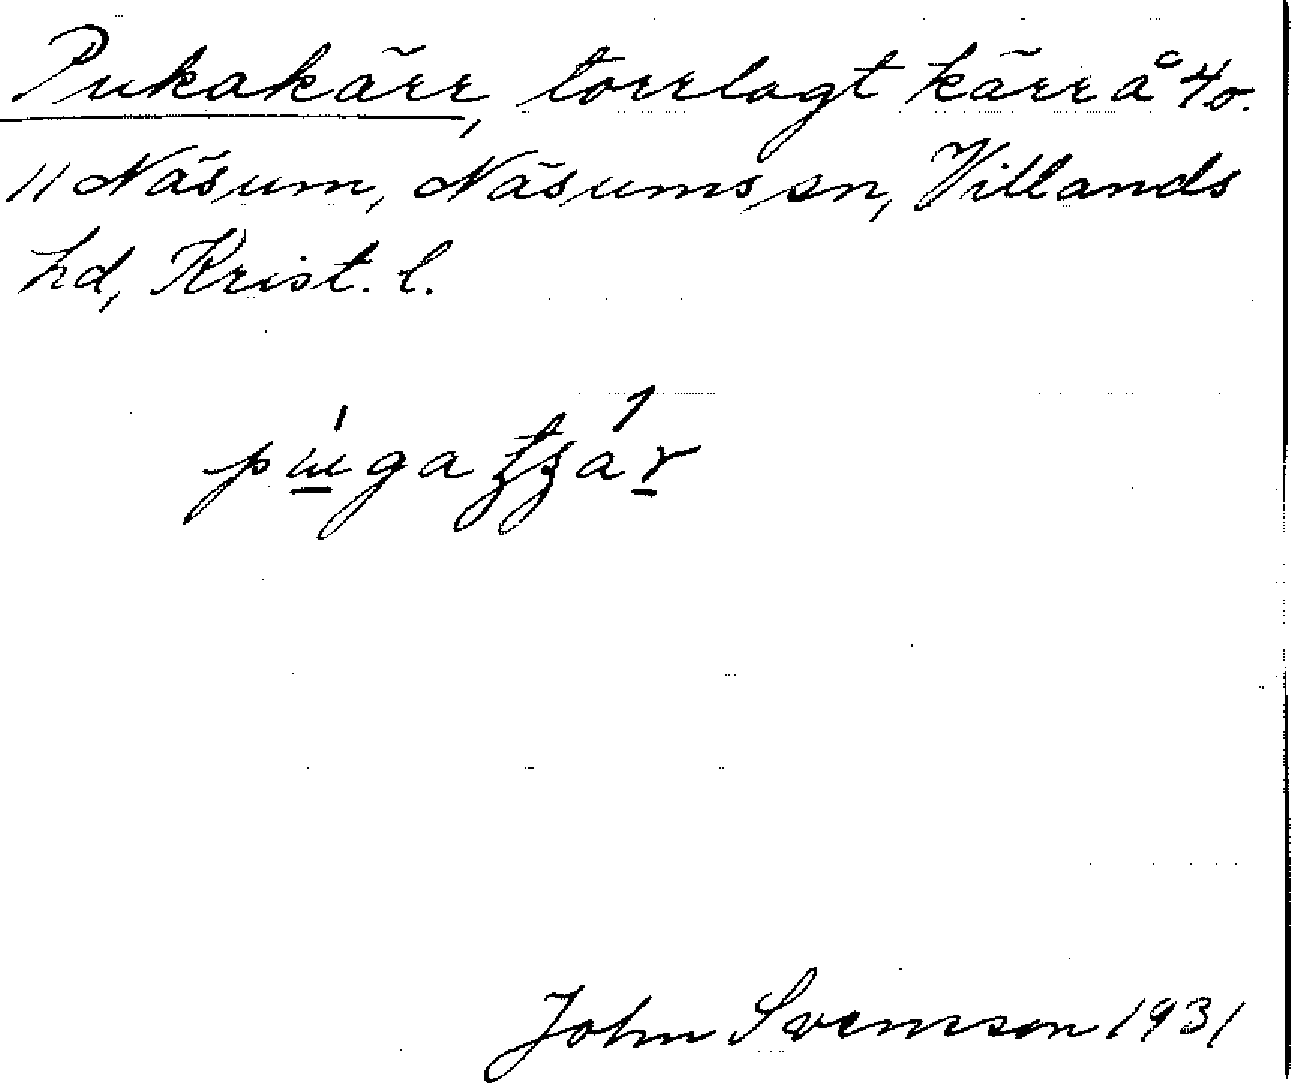 Pukakärr, torrlagt kärr å 4 o.
11 Näsum, Näsums sn, Villands
hd, Krist. l.
John Svensson 1931